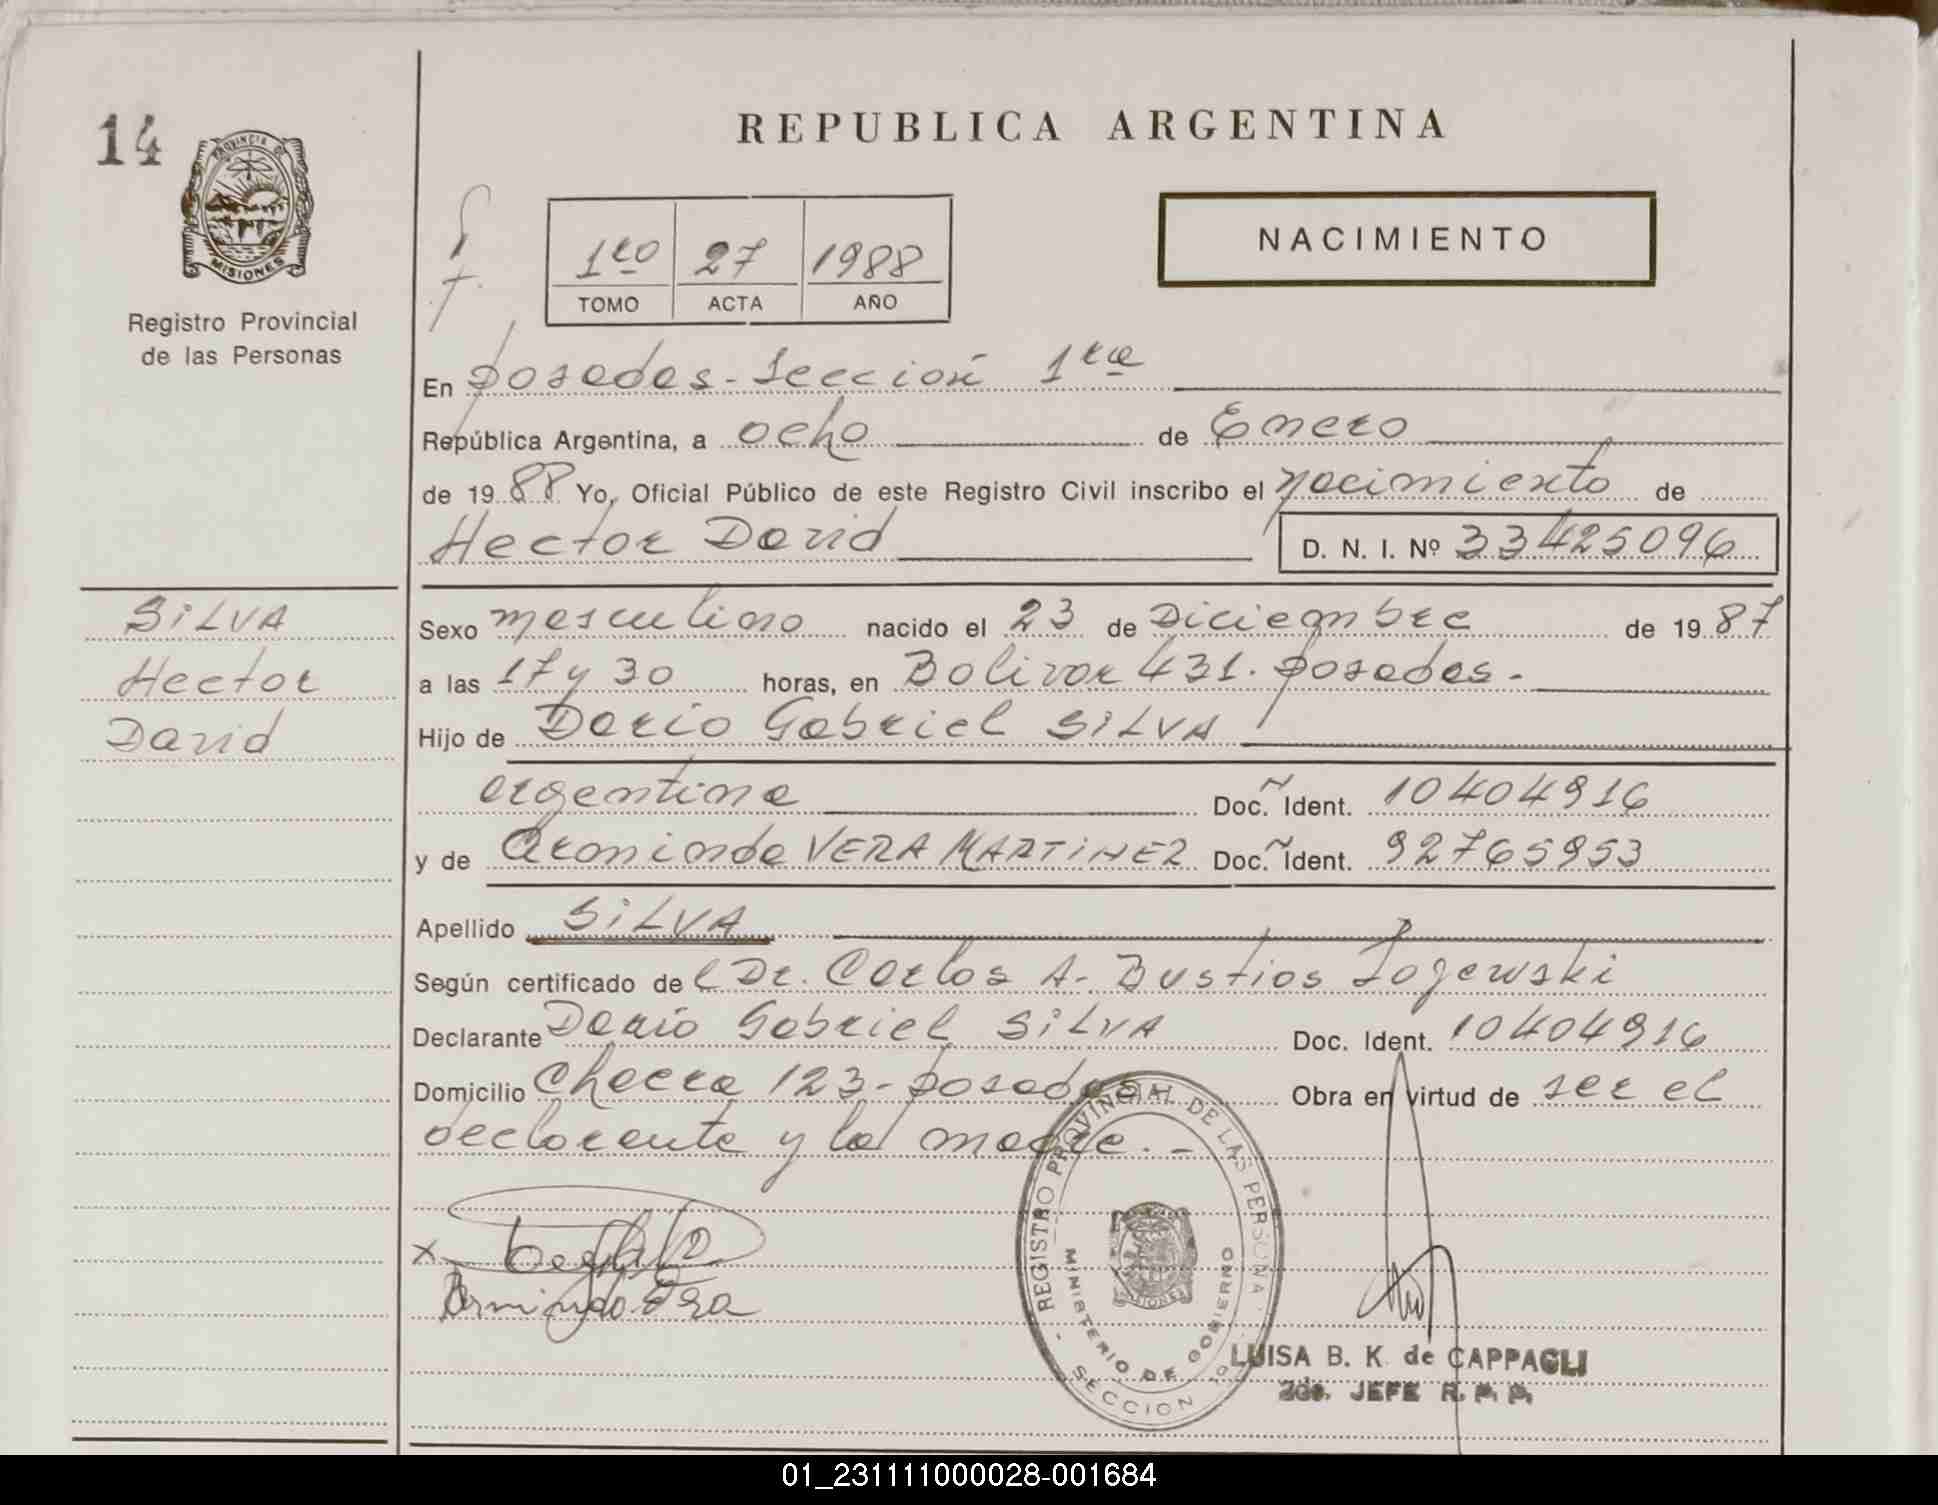 14
PROVINCIA DE
MISIONES
Registro Provincial
de las Personas
REPUBLICA ARGENTINA
NACIMIENTO
1ro 27 1988
TOMO ACTA AÑO
En Posadas - Sección 1ra
República Argentina, a ocho de Enero
de 1988 Yo, Oficial Público de este Registro Civil inscribo el nacimiento de
Hector David D. N. I. Nº 33425096
SiLVA
Hector
David
Sexo masculino nacido el 23 de Diciembre de 1987
a las 17 y 30 horas, en Bolivar 431. Posadas.-
Hijo de Darío Gabriel SiLVA
argentino Doc. Ident. 10404916
y de Arminda VERA MARTiNEZ Doc. Ident. 92765953
Apellido SiLVA
Según certificado del Dr. Carlos A. Bustios
Declarante Darío Gabriel SiLVA Doc. Ident. 10404916
Domicilio Chacra 123 - Posadas Obra en virtud de ser el
declarante y la madre.-
x
REGISTRO PROVINCIAL DE LAS PERSONAS
MINISTERIO DE GOBIERNO
MISIONES
SECCION 1a
LUISA B. K. de CAPPAGLI
2do. JEFE R. P. P.
01_231111000028-001684